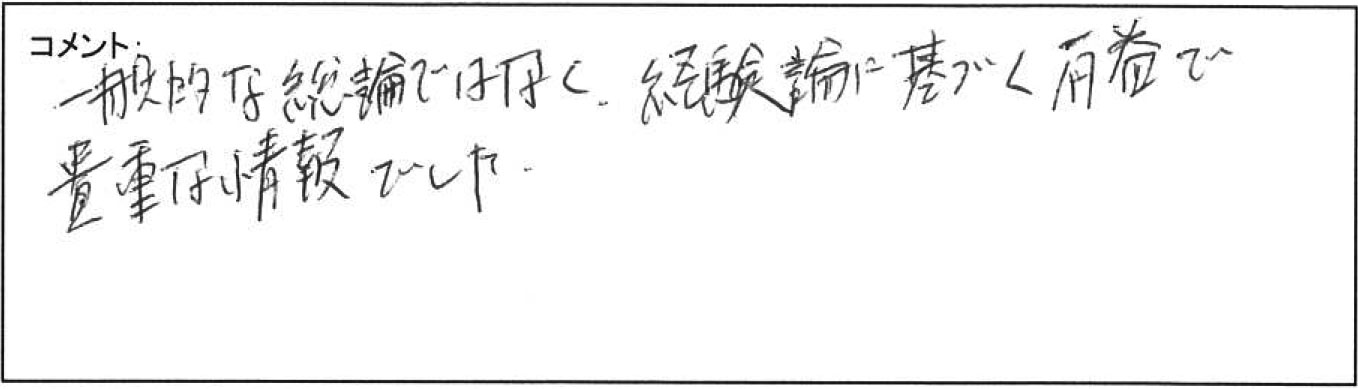 コメント:
一般的な総論ではなく、経験論に基づく有益で
貴重な情報でした.